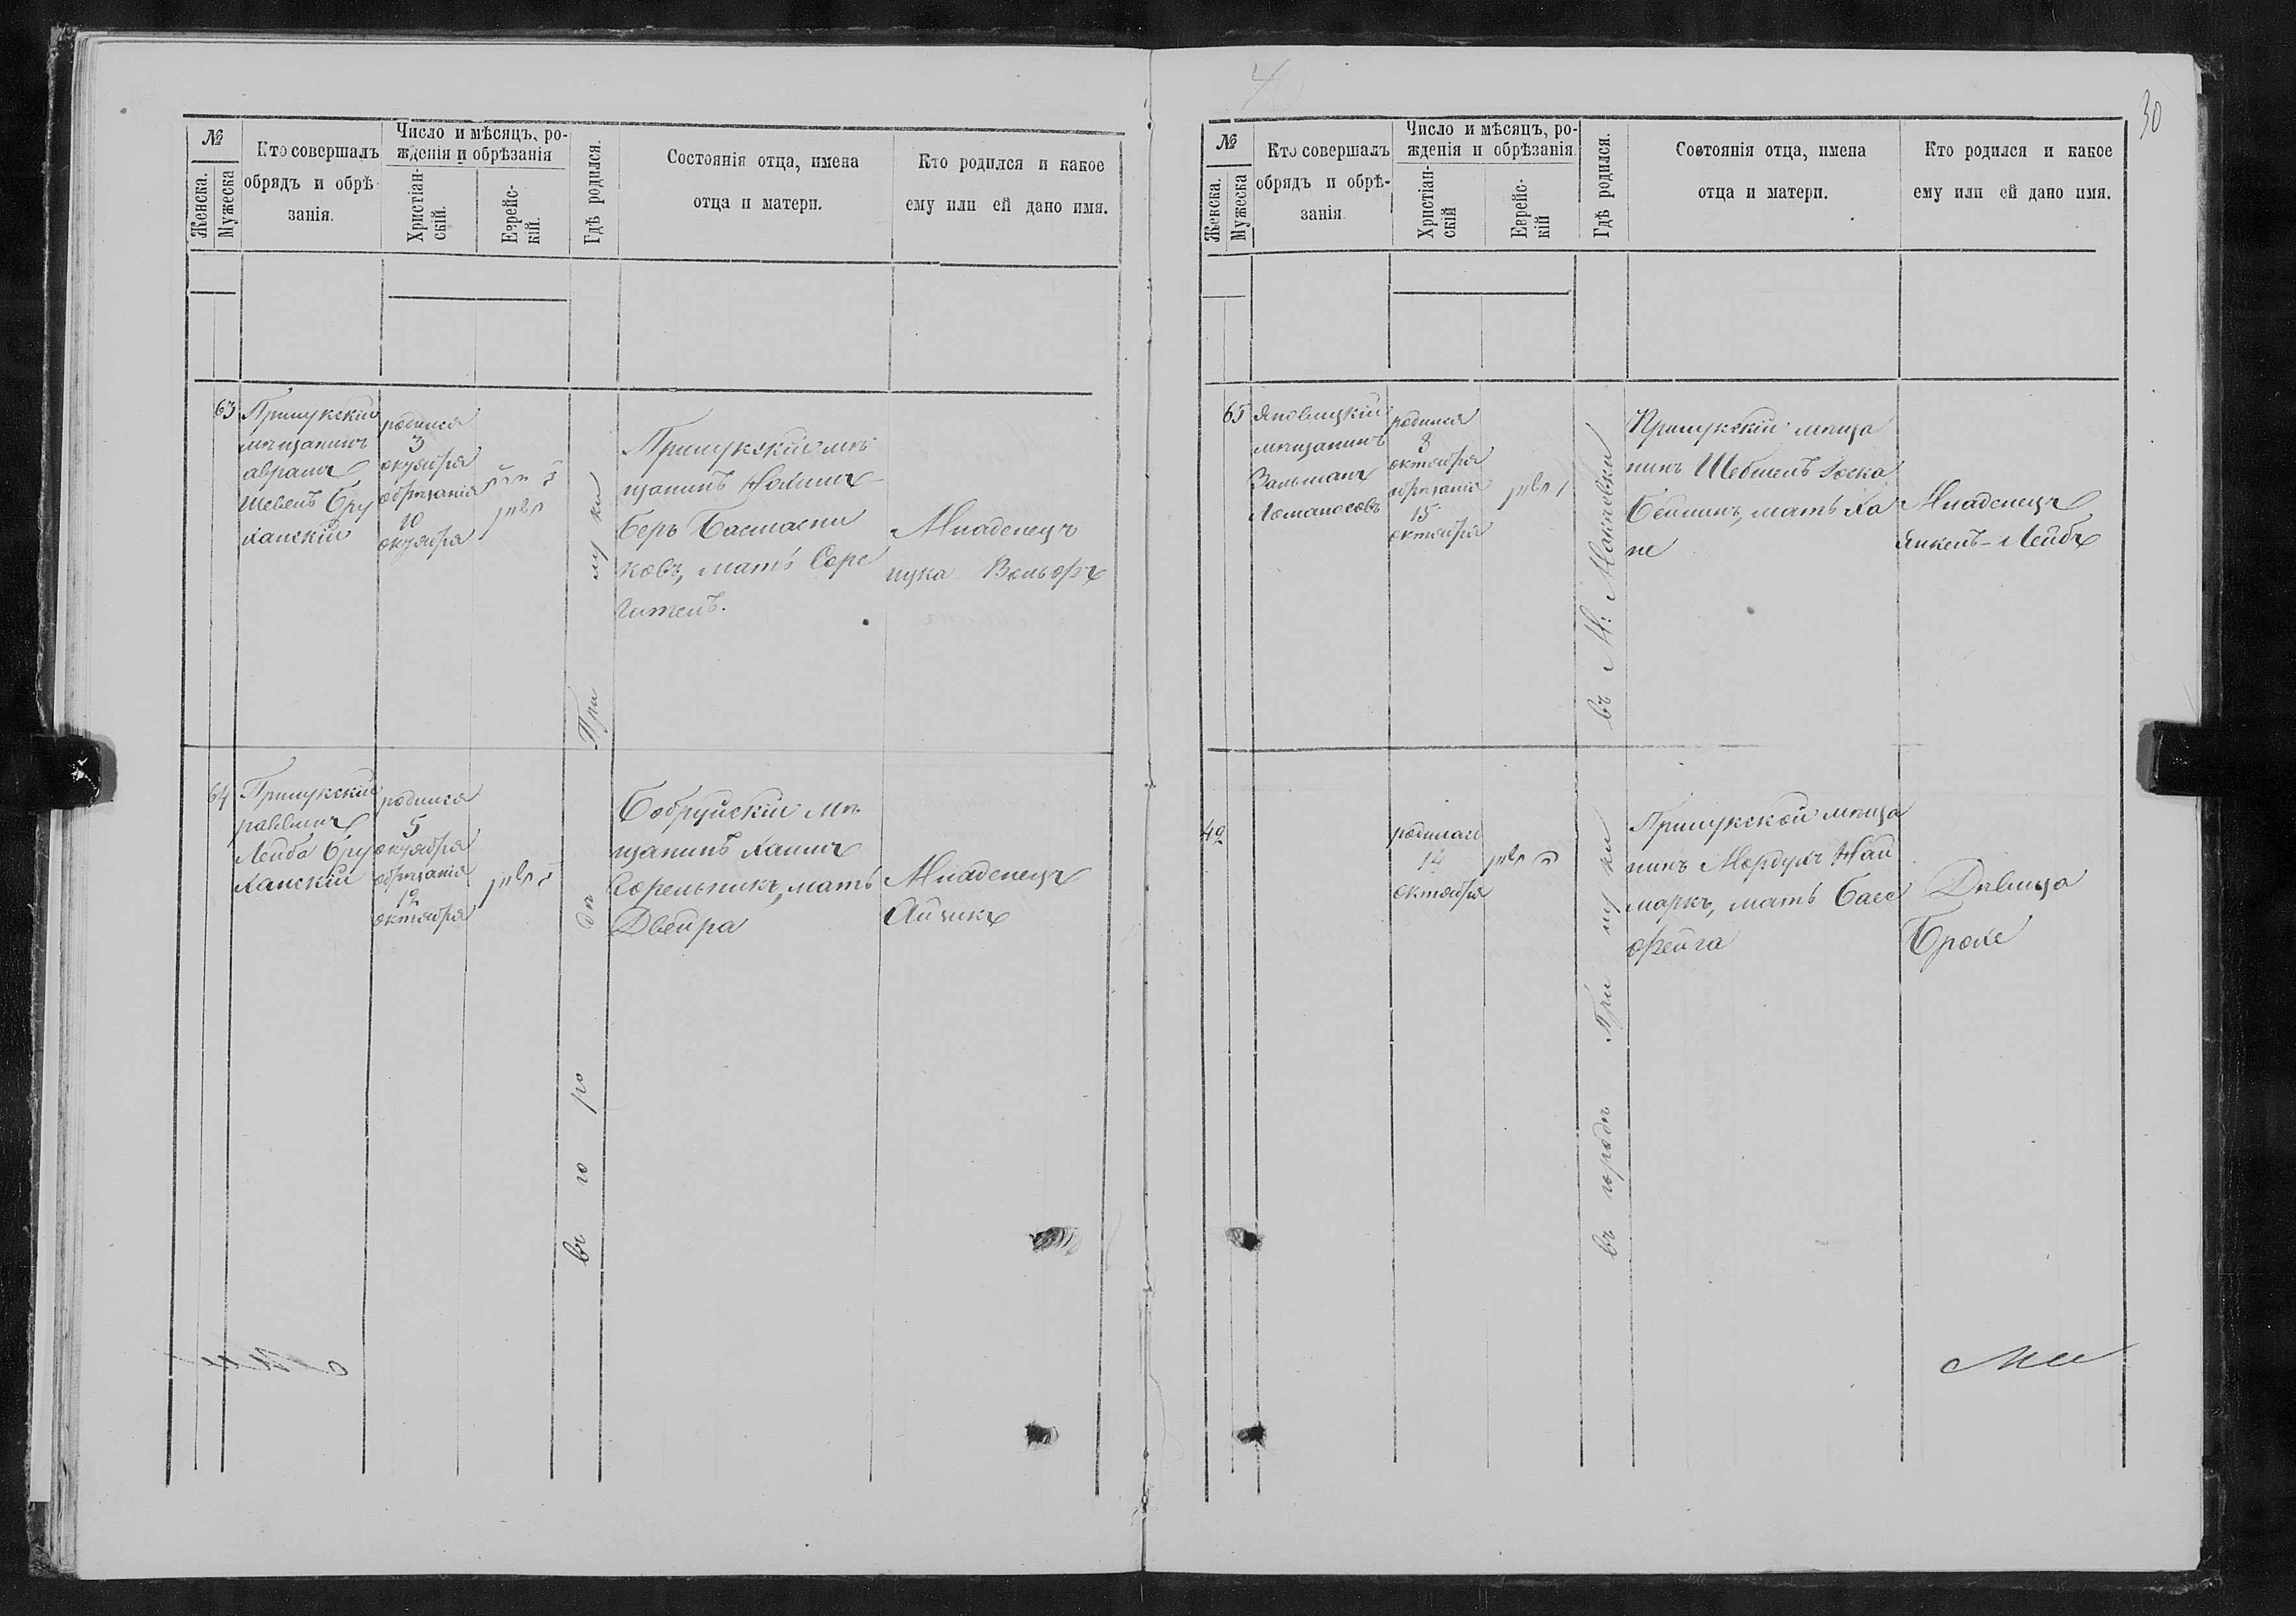 №
Женска.
Мужеска
Кто совершалъ
обрядъ и обрѣ-
занія.
Число и мѣсяцъ, ро-
жденія и обрѣзанія
Христіан-
скій.
Еврейс-
кій.
Гдѣ родился.
Состоянія отца, имена
отца и матери.
Кто родился и какое
ему или ей дано имя.
63
Прилукскій
мѣщанинъ
аврамъ
Шевель Бру
ханскій
родился
3
октября
обрѣзанія
10
октября
Прилукскій мѣ
щанинъ Нохимъ-
Беръ
ковъ, мать Соре
Гитель.
Младенецъ
Вольфъ
64
Прилукскій
раввинъ
Лейба Бру
ханскій
родился
5
октября
обрѣзанія
12
октября
въ го ро дѣ При лу ки
Бобруйскій мѣ
щанинъ Хаимъ
Горельникъ, мать
Двейра
Младенецъ
Айзикъ
4
30
№
Женска.
Мужеска
Кто совершалъ
обрядъ и обрѣ-
занія.
Число и мѣсяцъ, ро-
жденія и обрѣзанія.
Христіан-
скій
Еврейс-
кій
Гдѣ родился.
Состоянія отца, имена
отца и матери.
Кто родился и какое
ему или ей дано имя.
65
Яновицкій
мѣщанинъ
Зальманъ
Ломаносовъ
родился
8
октября
обрѣзанія
15
октября
въ М: Монковки
Прилукскій мѣща
нинъ
мать Ха
не
Младенецъ
Янкель-Лейбъ
49
родилась
14
октября
въ городѣ При лу ки
Прилукской мѣща
нинъ Мордухъ Най
маркъ, мать Басе
Фейга
Дѣвица
Брохе